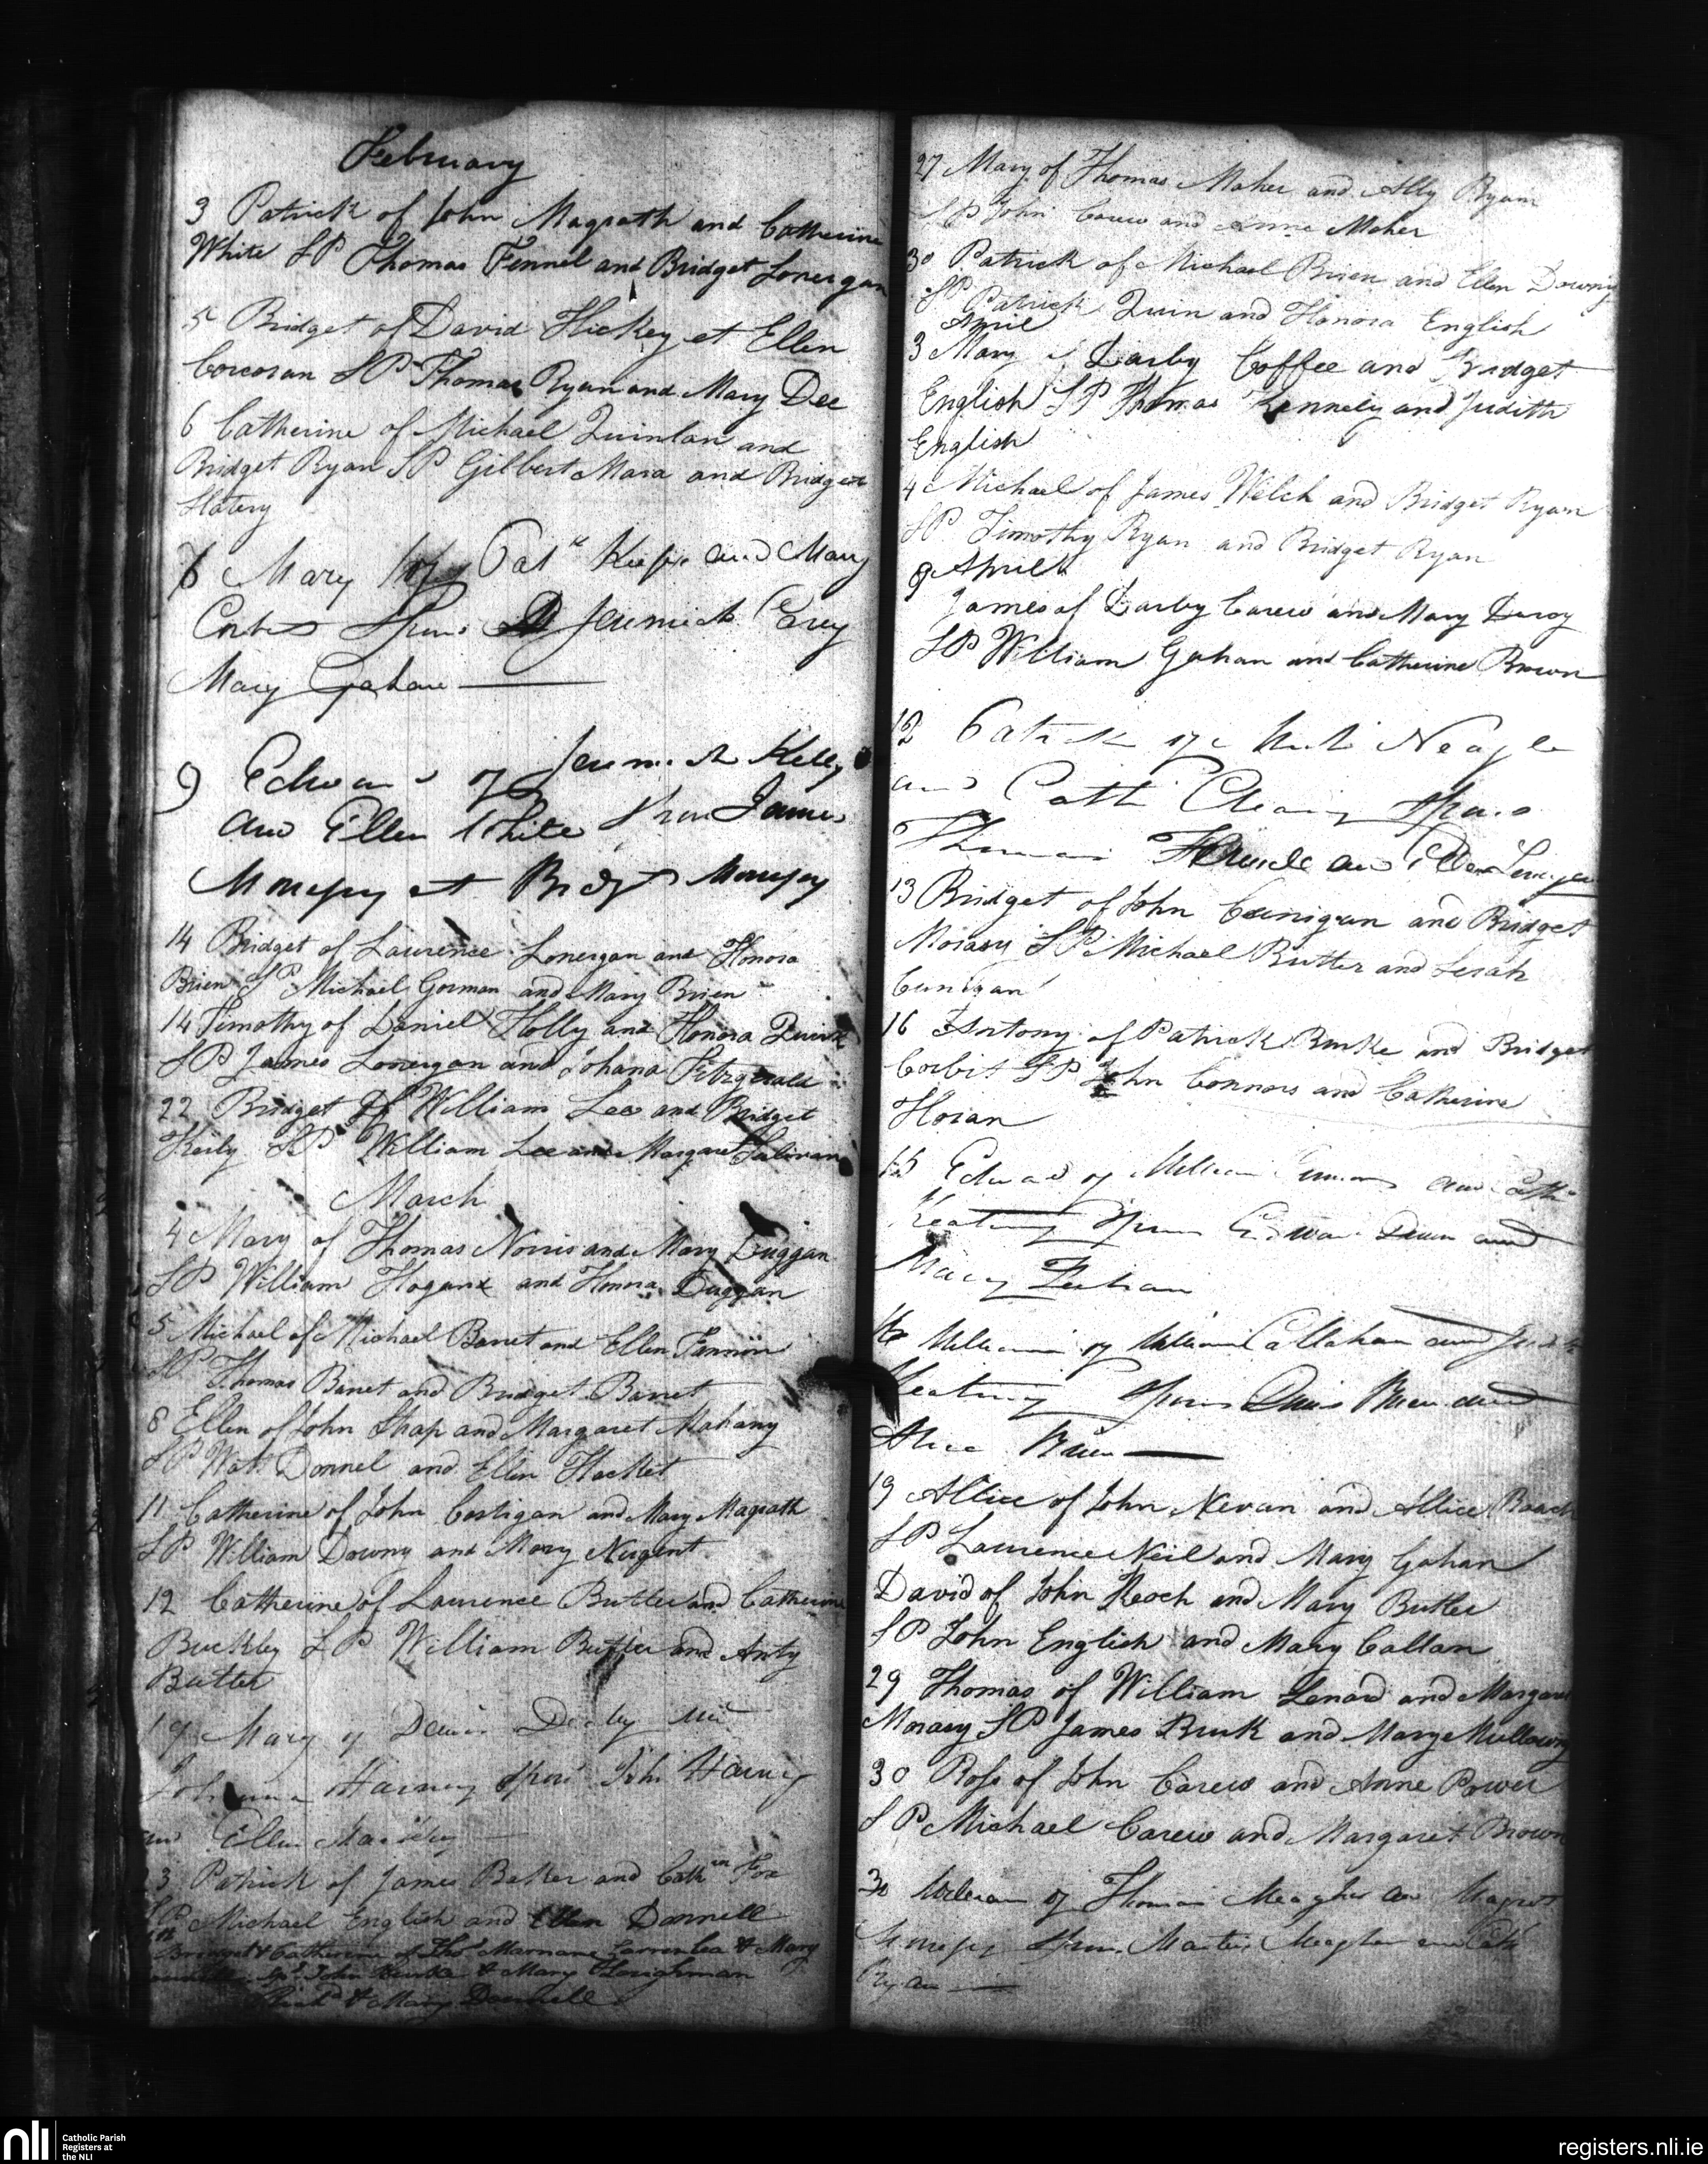 February
3 Patrick of John Magrath and Catherine
White SP Thomas Fennel and Bridget Lonergan
5 Bridget of David Hickey et Ellen
Corcoran SP Thomas Ryan and Mary Dee
6 Catherine of Michael Quinlan and
Bridget Ryan SP Gilbert Mara and Bridget
Slatery
Mary of Patk and Mary
Spons Jeremiah
Mary Gahan
9 Edward of Jeremiah Kelly
and Ellen White Spon James
et Bridgt
14 Bridget of Laurence Lonergan and Honora
Brien SP Michael Gorman and Mary Brien
14 Timothy of Daniel Holly and Honora Quirk
SP James Lonergan and Johana Fitzgerald
22 Bridget of William Lee and Bridget
Keily SP William Lee and Margaret Sulivan
March
4 Mary of Thomas Norris and Mary Duggan
SP William Hogan and Honora Duggan
5 Michael of Michael Barret and Ellen Fennon
SP Thomas Barret and Bridget Barret
8 Ellen of John Shap and Margaret Mahany
SP Wat Donnel and Ellen Hacket
11 Catherine of John Costigan and Mary Magrath
SP William Downy and Mary Nugent
12 Catherine of Laurence Butler and Catherine
Buckley SP William Butler and Anty
Butler
19 Mary of Denis
Johanna Harney Spons John Harney
and Ellen
23 Patrick of James Baker and Cathn Fox
SP Michael English and Ellen Donnell
Bridget & Catherine of Thos Marnane & Mary
John & Mary
& Mary Donnell
27 Mary of Thomas Maher and Ally Ryan
SP John Carew and Anne Maher
30 Patrick of Michael Brien and Ellen Downy
SP Patrick Quin and Honora English
April
3 Mary of Darby Coffee and Bridget
English SP Thomas Kennely and Judith
English
4 Michael of James Welch and Bridget Ryan
SP Timothy Ryan and Bridget Ryan
9 April
James of Darby Carew and Mary Darcy
SP William Gahan and Catherine Brown
12 Patrick of Neagle
and Cath Cleary Spons
Thomas and Ellen
13 Bridget of John Cunigan and Bridget
Morasy SP Michael Butler and Serah
Cunigan
16 Antony of Patrick Burke and Bridget
Corbit SP John Connors and Catherine
Horan
15 Edward of William and Cath
Keating Spons Edward and
Mary
16 William of William Callahan and Judith
Keating Spons Denis Brien and
Alice Brien
19 Allice of John Nevan and Allice Roach
SP Laurence Neil and Mary Gahan
David of John Keoch and Mary Butler
SP John English and Mary Callan
29 Thomas of William Lenard and Margaret
Morasy SP James Burk and Mary Mullowny
30 Ross of John Carew and Anne Power
SP Michael Carew and Margaret Brown
30 William of Thomas Meagher and Margret
Spons Martin Meagher and Cath
Ryan
nli
Catholic Parish
Registers at
the NLI
registers.nli.ie